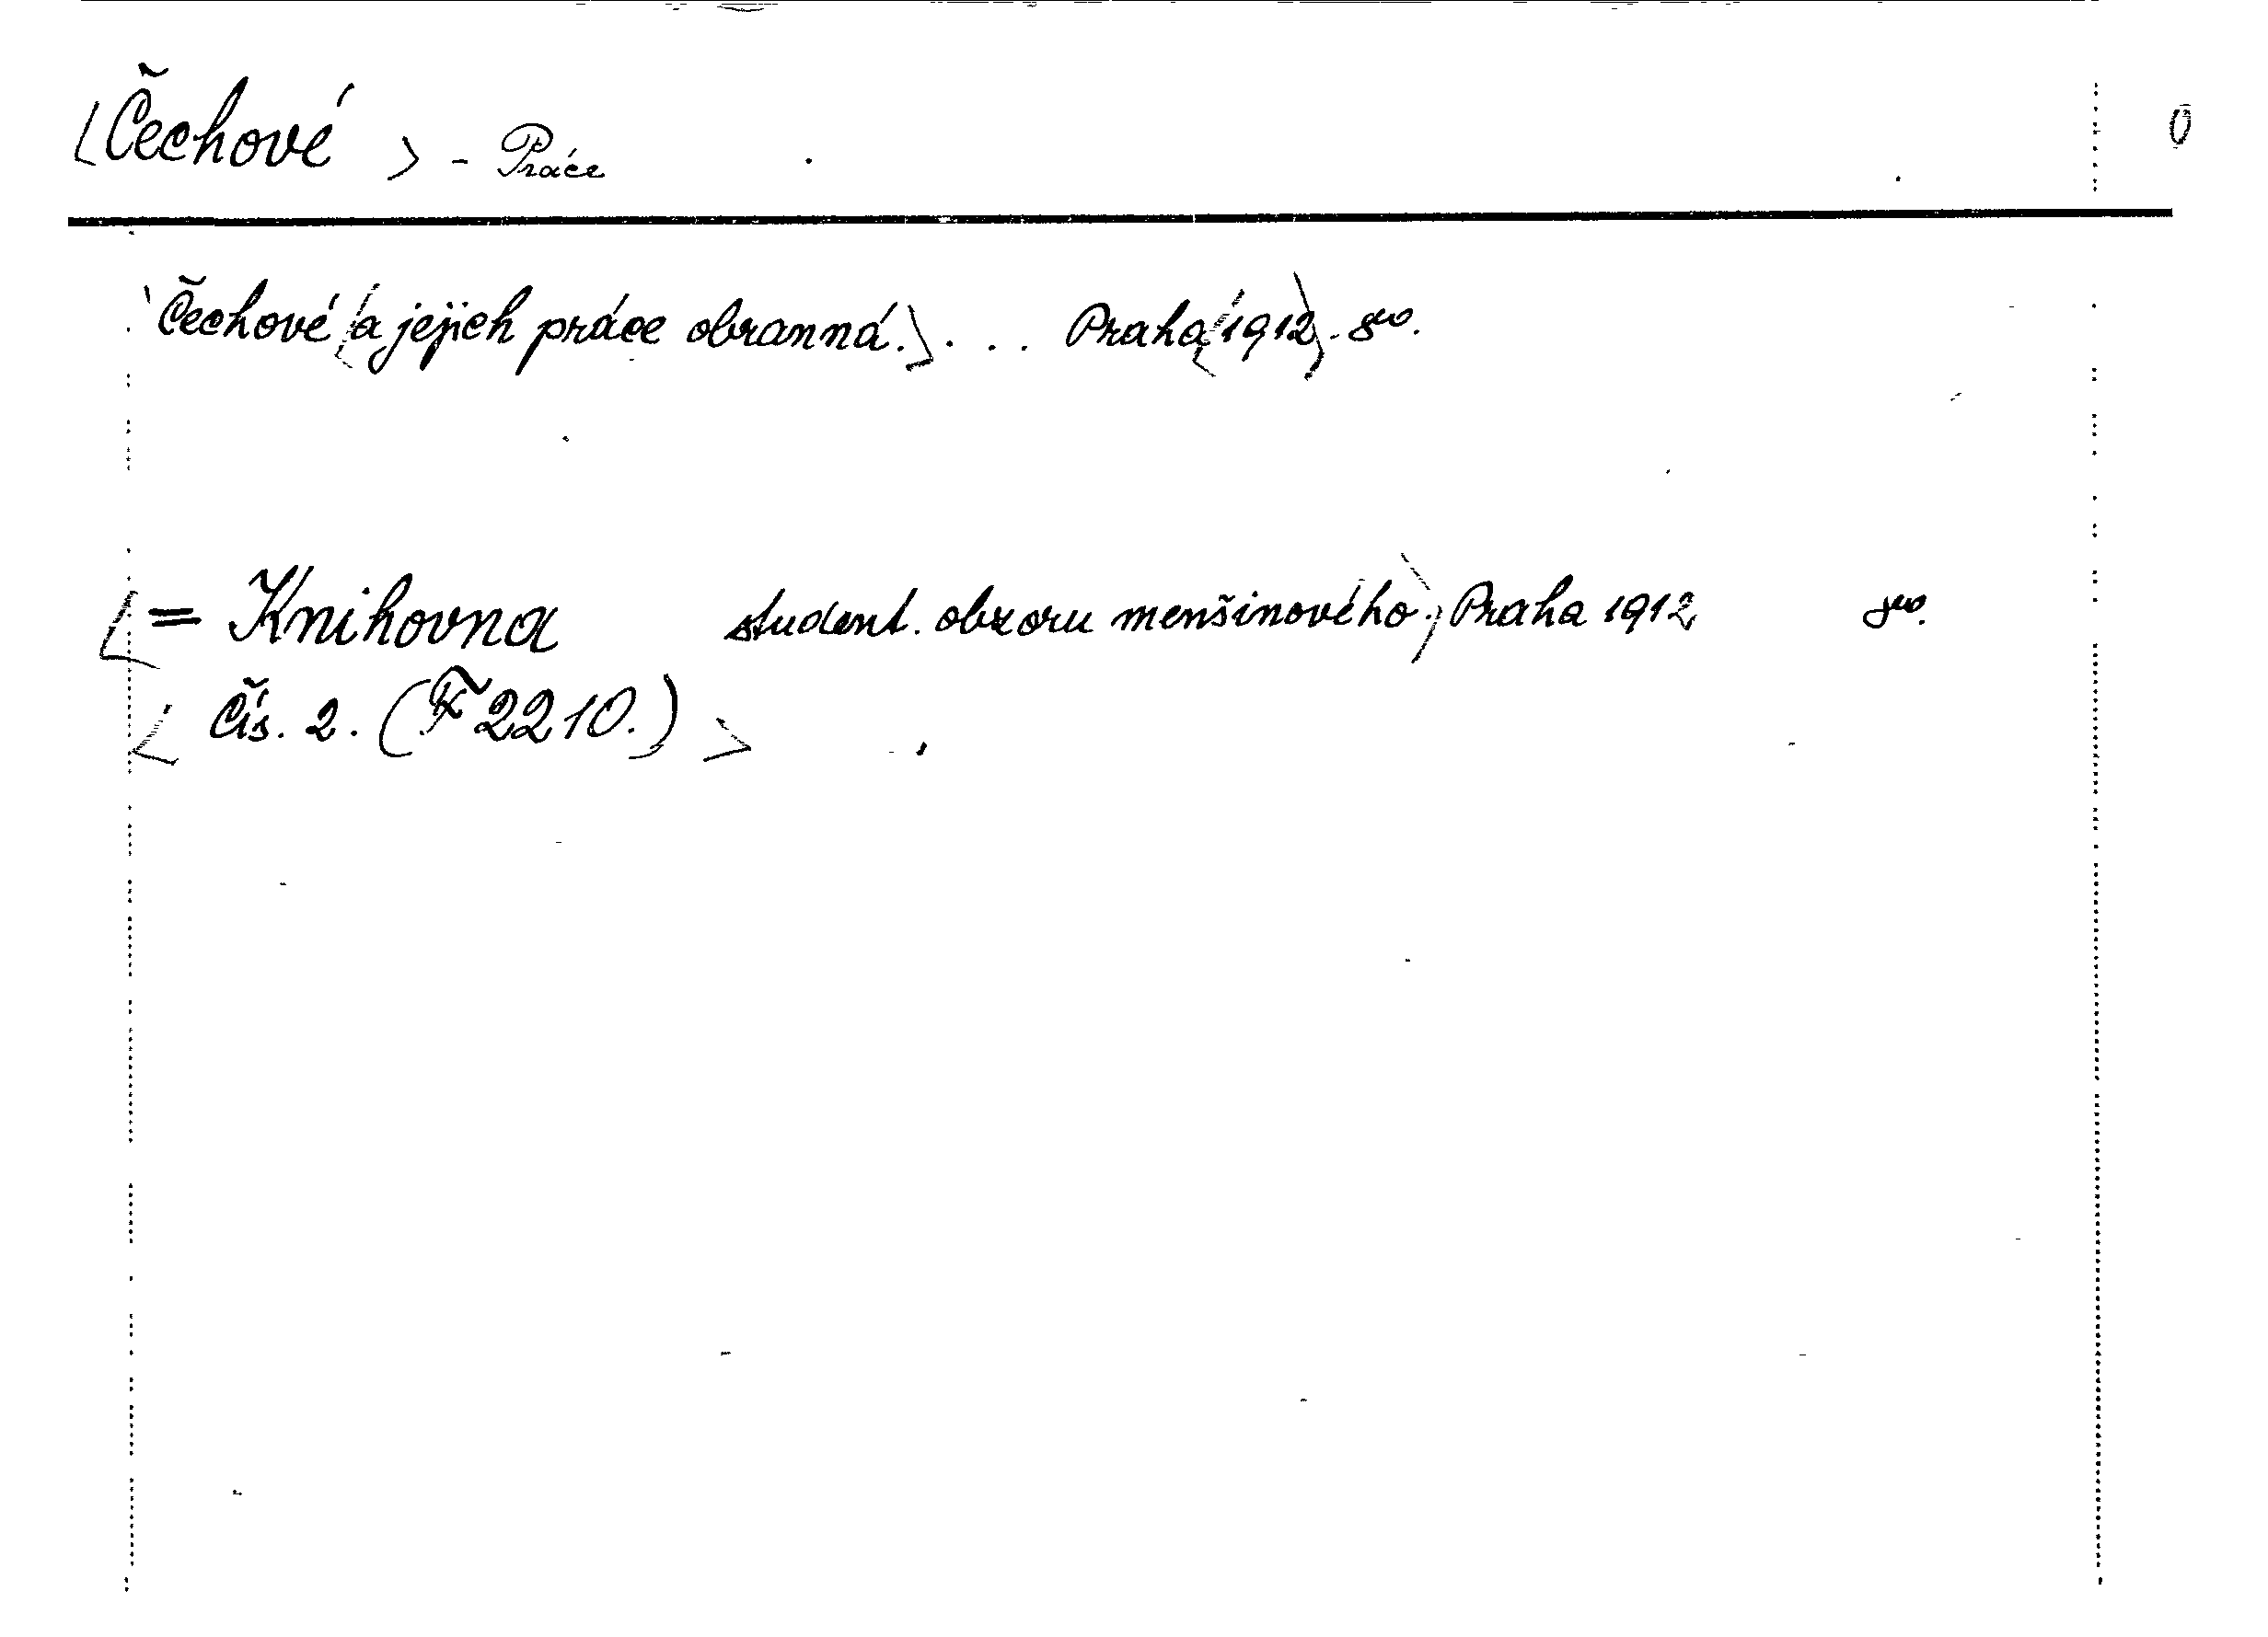 [Čechové > - Práce 0
Čechové <a jejich práce obranná.> . . . Praha <1912>. 8vo.
[= Knihovna student. obzoru menšinového.> Praha 1912 8vo.
< Čís. 2. (F 2210.) >